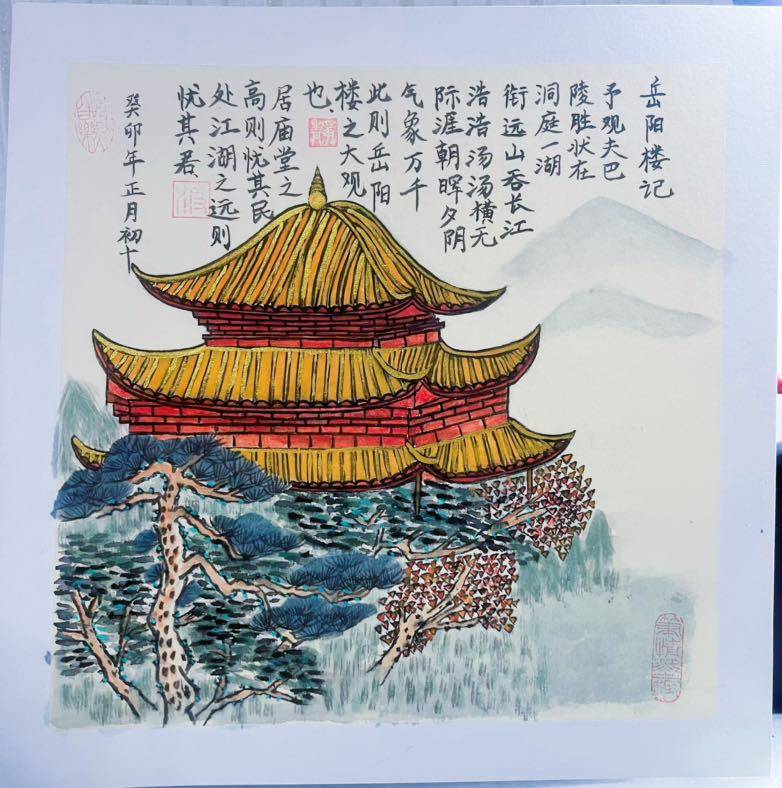 岳阳楼记
予观夫巴
陵胜状在
洞庭一湖
衔远山吞长江
浩浩汤汤横无
际涯朝晖夕阴
气象万千
此则岳阳
楼之大观
也
居庙堂之
高则忧其民
处江湖之远则
忧其君
癸卯年正月初十